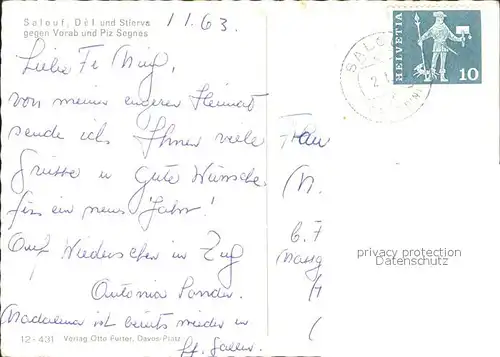 Salouf, Dèl und Stierva
gegen Vorab und Piz Segnes
1 1. 63.
HELVETIA
10
SALOUF
Liebe Fr
von meiner engeren Heimat
sende ich Ihnen viele
Grüsse u Gute Wünsche
fürs ein neues Jahr!
Auf Wiedersehen in Zug
Antonia
Madalena ist bereits wieder in
St. Gallen.
Frau
privacy protection
Datenschutz
12-431 Verlag Otto Furter, Davos-Platz